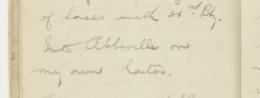 of horses with 31st Bty.
Into Abbeville on
my own horses.